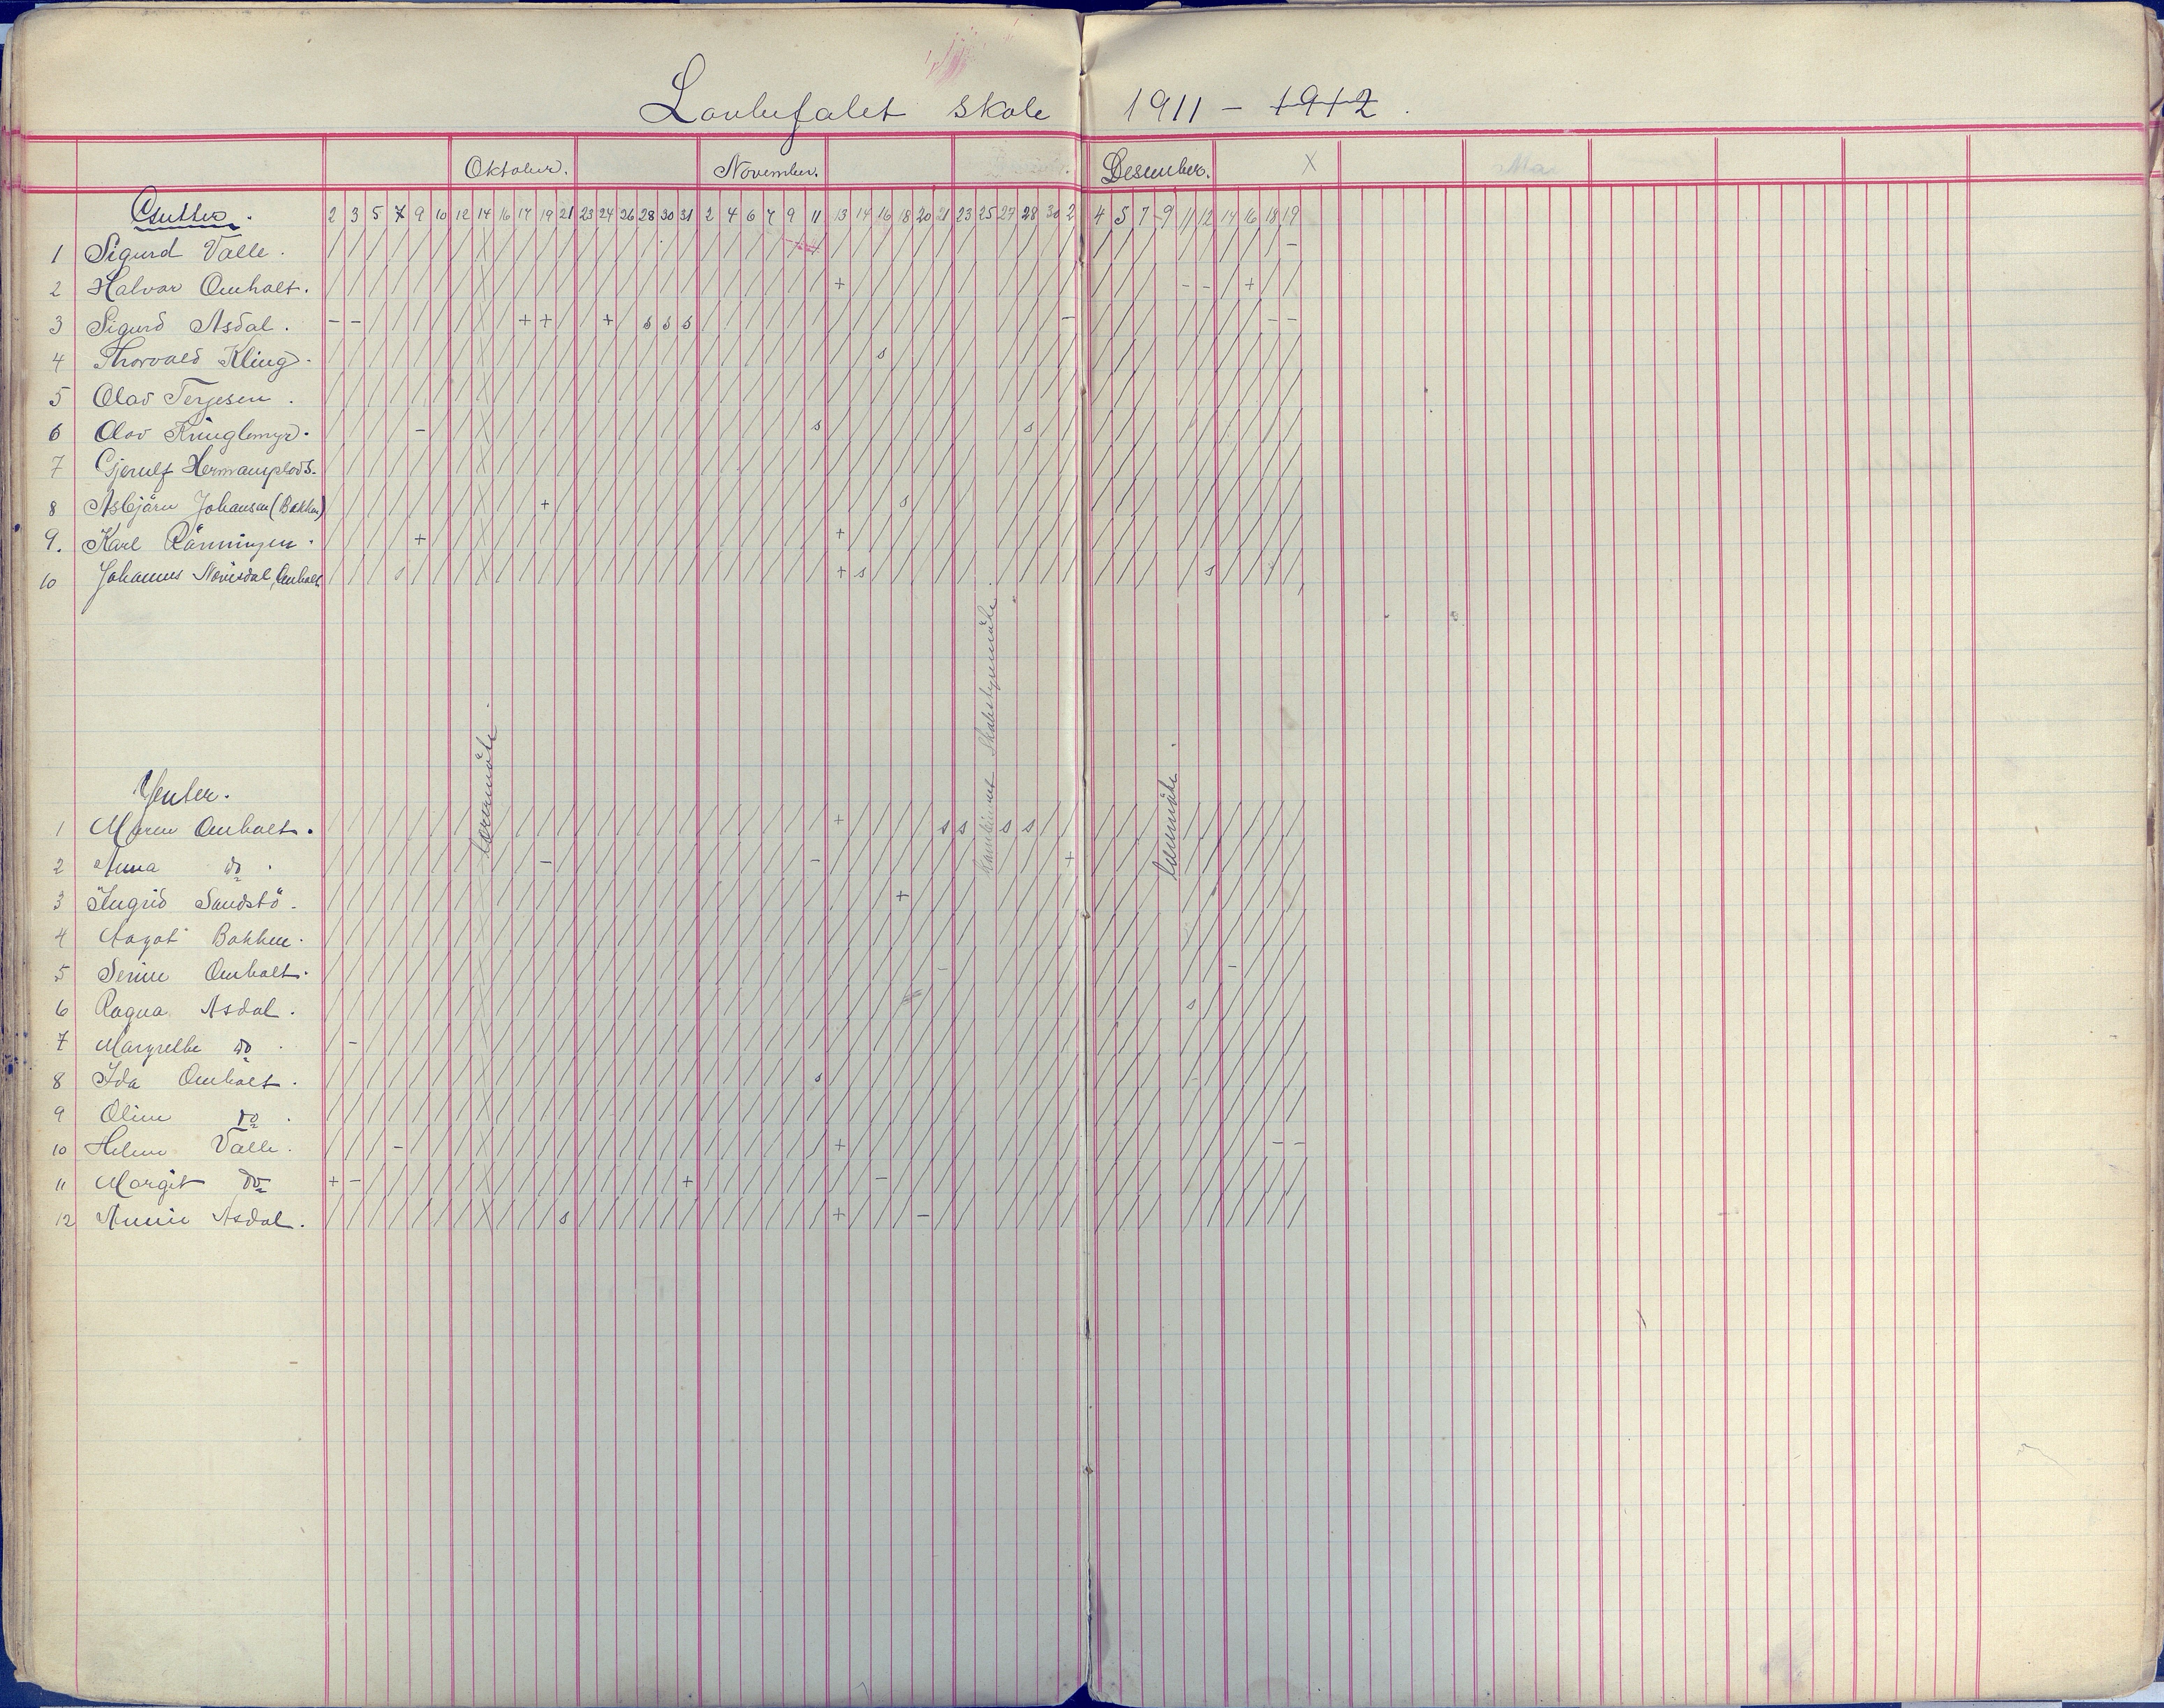 Lauvfalet skole 1911 – 1912.
Oktober. November. Desember. X
Gutter.
2 3 5 7 9 10 12 14 16 17 19 21 23 24 26 28 30 31 2 4 6 7 9 11 13 14 16 18 20 21 23 25 27 28 30 2 4 5 7 9 11 12 14 16 18 19
1 Sigurd Valle.
2 Halvor Omholt.
3 Sigurd Asdal.
4 Thorvald Kling.
5 Olav Terjesen.
6 Olav Kringlemyr.
7 Gjerulf Hermansplads.
8 Asbjørn Johansen (Bakken)
9. Karl Rønningen.
10 Johannes Omholt
Lærermøte.
Kombineret Skolestyremøte
Lærermøte.
Jenter.
1 Maren Omholt.
2 Anna do.
3 Ingrid Sandstø.
4 Aagot Bakken.
5 Serine Omholt.
6 Ragna Asdal.
7 Margrethe do.
8 Ida Omholt.
9 Oline do.
10 Helene Valle.
11 Margit do
12 Annie Asdal.